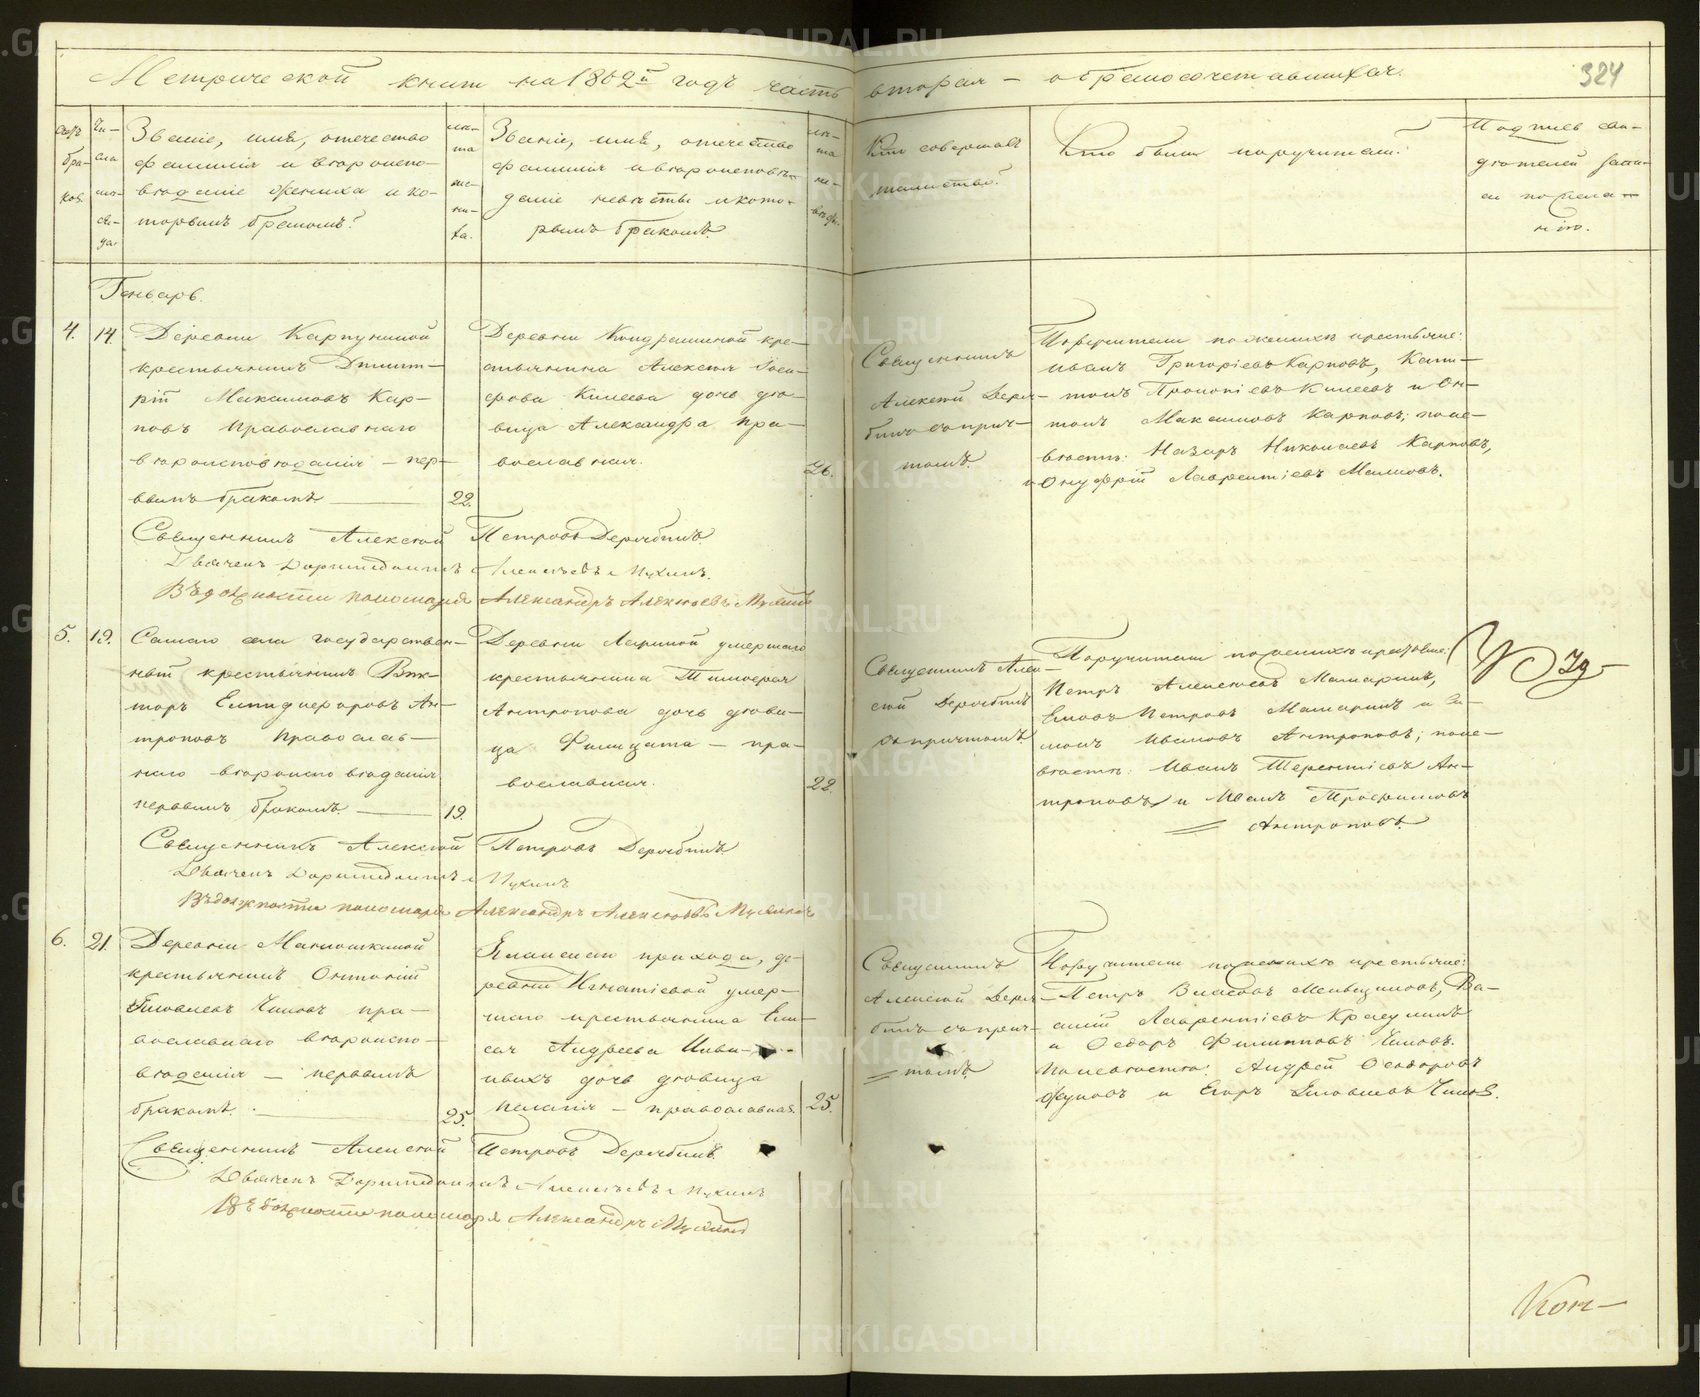 Метрической книги на 1862й годъ часть вторая – о бракосочетавшихся.
324
Счетъ бра-ковъ.
Чи-сла мѣ-ся-ца.
Званіе, имя, отечество
фамилія и вѣроиспо-
вѣданіе жениха и ко-
торымъ бракомъ?
лѣ-та же-ни-ха.
Званіе, имя, отечество
фамилія и вѣроисповѣ-
даніе невѣсты и кото-
рымъ бракомъ.
лѣ-та не-вѣсты.
Кто совершалъ
таинство.
Кто были поручители.
Подпись сви-
дѣтелей записи
по жела-
нію.
Генварь.
4. 14.
Деревни Карпуниной
крестьянинъ Дмит-
рій Максимовъ Кар-
повъ православнаго
вѣроисповѣданія – пер-
вымъ бракомъ. 22.
Деревни Кондрашиной кре-
стьянина Алексѣя Іоси-
фова Килеева дочь дѣ-
вица Александра пра-
вославная. 26.
Священникъ
Алексѣй Деря-
бинъ съ прич-
томъ.
Поручители по женихѣ крестьяне:
Иванъ Григоріевъ Карповъ, Капи-
тонъ Прокопіевъ Килеевъ и Ан-
тонъ Максимовъ Карповъ; по не-
вѣстѣ: Назаръ Николаевъ Карповъ,
и Онуфрій Лаврентіевъ Малиовъ.
Священникъ Алексѣй Петровъ Дерябинъ.
Дьячекъ Доримедонтъ Алексѣевъ Пукинъ.
Въ должности пономаря Александръ Алексѣевъ
5. 19.
Самаго села государствен-
ный крестьянинъ Вик-
торъ Елпидифоровъ Ан-
троповъ православ-
наго вѣроисповѣданія
первымъ бракомъ. 19.
Деревни Лариной умершаго
крестьянина Тимофея
Антропова дочь дѣви-
ца Филицата – пра-
вославная. 22.
Священникъ Алек-
сѣй Дерябинъ
съ причтомъ.
Поручители по женихѣ крестьяне:
Петръ Алексѣевъ Мамаринъ,
Яковъ Петровъ Мамаринъ и Си-
монъ Ивановъ Антроповъ; по не-
вѣстѣ: Иванъ Терентіевъ Ан-
троповъ и Иванъ Трофимовъ
Антроповъ.
Священникъ Алексѣй Петровъ Дерябинъ.
Дьячекъ Доримедонтъ Пукинъ
Въ должности пономаря Александръ Алексѣевъ
6. 21.
Деревни Матюшкиной
крестьянинъ Онтоній
Яковлевъ Чиковъ пра-
вославнаго вѣроиспо-
вѣданія – первымъ
бракомъ. 25.
Еланскаго прихода, де-
ревни Игнатіевой умер-
шаго крестьянина Ели-
сея Андреева
дочь дѣвица
Пелагія – православная. 25.
Священникъ
Алексѣй Деря-
бинъ съ прич-
томъ.
Поручители по женихѣ крестьяне:
Петръ Власовъ Меньщиковъ, Ва-
силій Лаврентіевъ Красулинъ
и Ѳедоръ Филипповъ Чиковъ.
По невѣстѣ: Андрей Ѳеодоровъ
и Егоръ Яковлевъ Чиковъ.
Священникъ Алексѣй Петровъ Дерябинъ.
Дьячекъ Доримедонтъ Алексѣевъ Пукинъ
Въ должности пономаря Александръ
METRIKI.GASO-URAL.RU